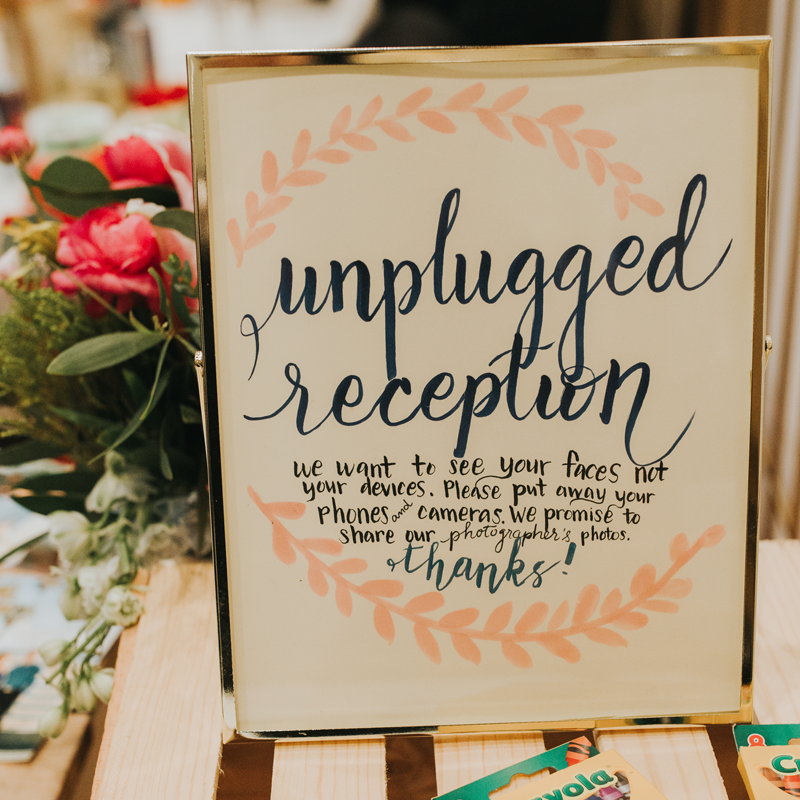 unplugged
reception
we want to see your faces not
your devices. Please put away your
phones and cameras. We promise to
share our photographer's photos.
thanks!
ayola
8
Cr